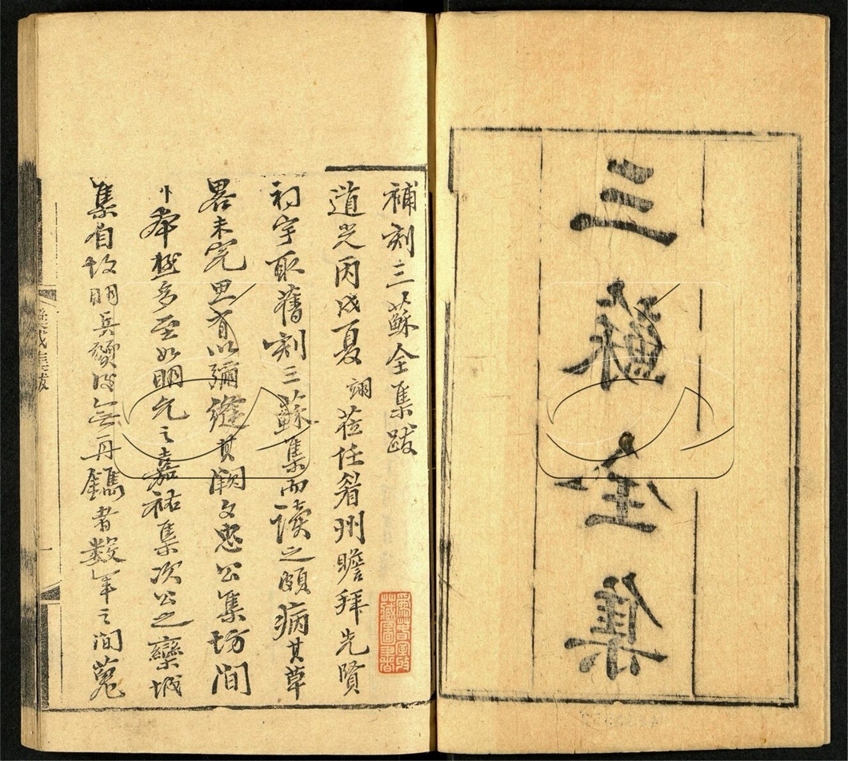 三蘇全集
補刻三蘇全集跋
道光丙戌夏翊莅任眉州瞻拜先賢
祠宇取舊刻三蘇集而讀之頗病其草
畧未完思有以彌縫其闕文忠公集坊間
卷極多至如明允之嘉祐集次公之欒城
集自故明兵燹後無再鐫者數年之間蒐